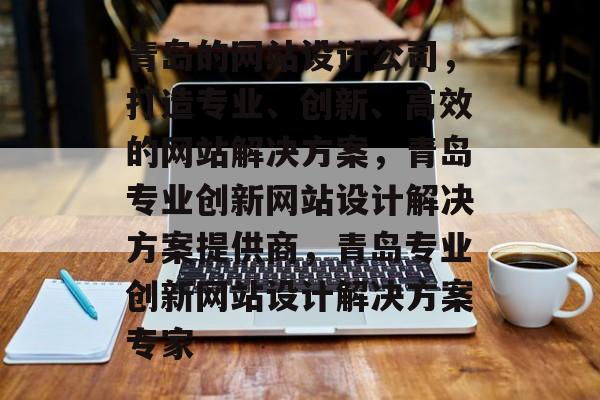 青岛的网站设计公司，
打造专业、创新、高效
的网站解决方案，青岛
专业创新网站设计解决
方案提供商，青岛专业
创新网站设计解决方案
专家